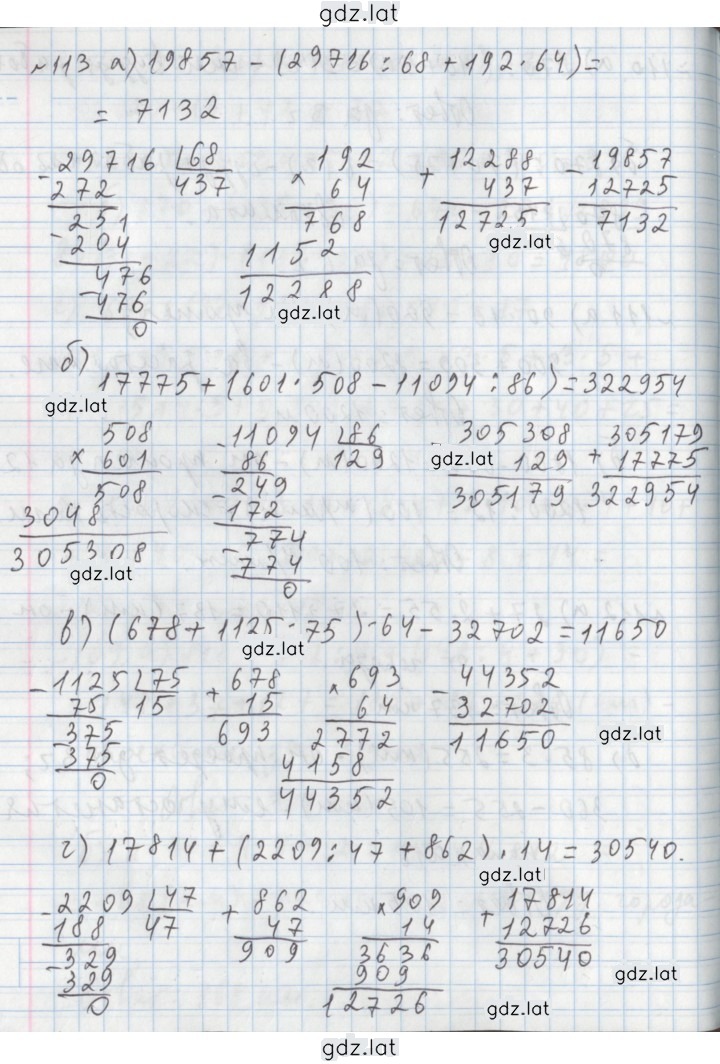 gdz.lat
№113 а) 19857 - (29716 : 68 + 192 · 64) =
= 7132
- 29716 | 68
272 437
- 251
204
- 476
476
0
× 192
64
768
1152
12288
+ 12288
437
12725
- 19857
12725
7132
gdz.lat
gdz.lat
б)
17775 + (601 · 508 - 11094 : 86) = 322954
gdz.lat
× 508
601
508
3048
305308
gdz.lat
- 11094 | 86
86 129
- 249
172
- 774
774
0
- 305308
gdz.lat 129
305179
+ 305179
17775
322954
в) (678 + 1125 · 75) · 64 - 32702 = 11650
gdz.lat
- 1125 | 75
75 15
- 375
375
0
+ 678
15
693
× 693
64
2772
4158
44352
- 44352
32702
11650
gdz.lat
г) 17814 + (2209 : 47 + 862) · 14 = 30540.
gdz.lat
- 2209 | 47
188 47
- 329
329
0
+ 862
47
909
× 909
14
3636
909
12726
+ 17814
12726
30540
gdz.lat
gdz.lat
gdz.lat